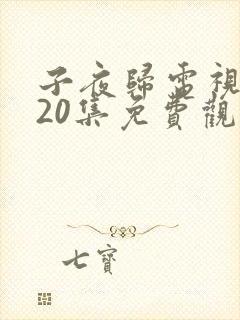 子夜歸電視
20集免費觀
七寶